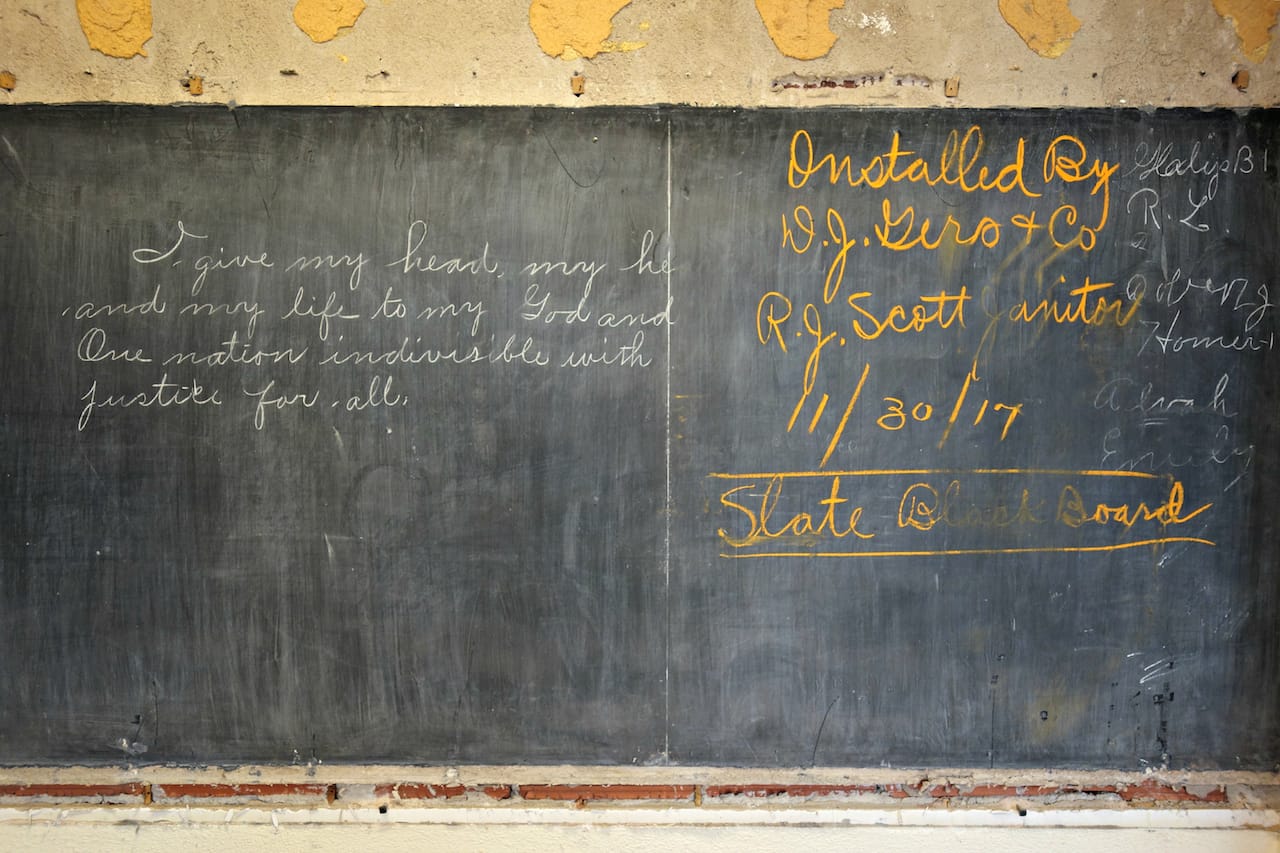 I give my head, my he
and my life to my God and
One nation indivisible with
justice for all.
Installed By
D.J. Gero & Co
R.J. Scott Janitor
11/30/17
Slate Black Board
Gladys B
R. L.
Homer
Alvah
Emily